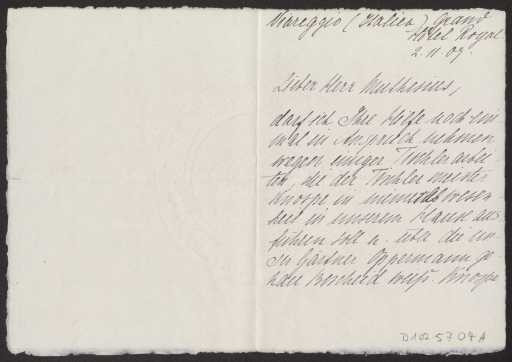 Viareggio (Italien) Grand
Hôtel Royal
2.11.07.
Lieber Herr Muthesius,
darf ich Ihre Hilfe noch ein
mal in Anspruch nehmen
wegen einiger Tischlerarbei
ten, die der Tischlermeister
Knospe in meiner Abwesen
heit in unserem Hause aus
führen soll u. über die un
ser Gärtner Oppermann ge
nau Bescheid weiß. Knospe
D 102-5704 A